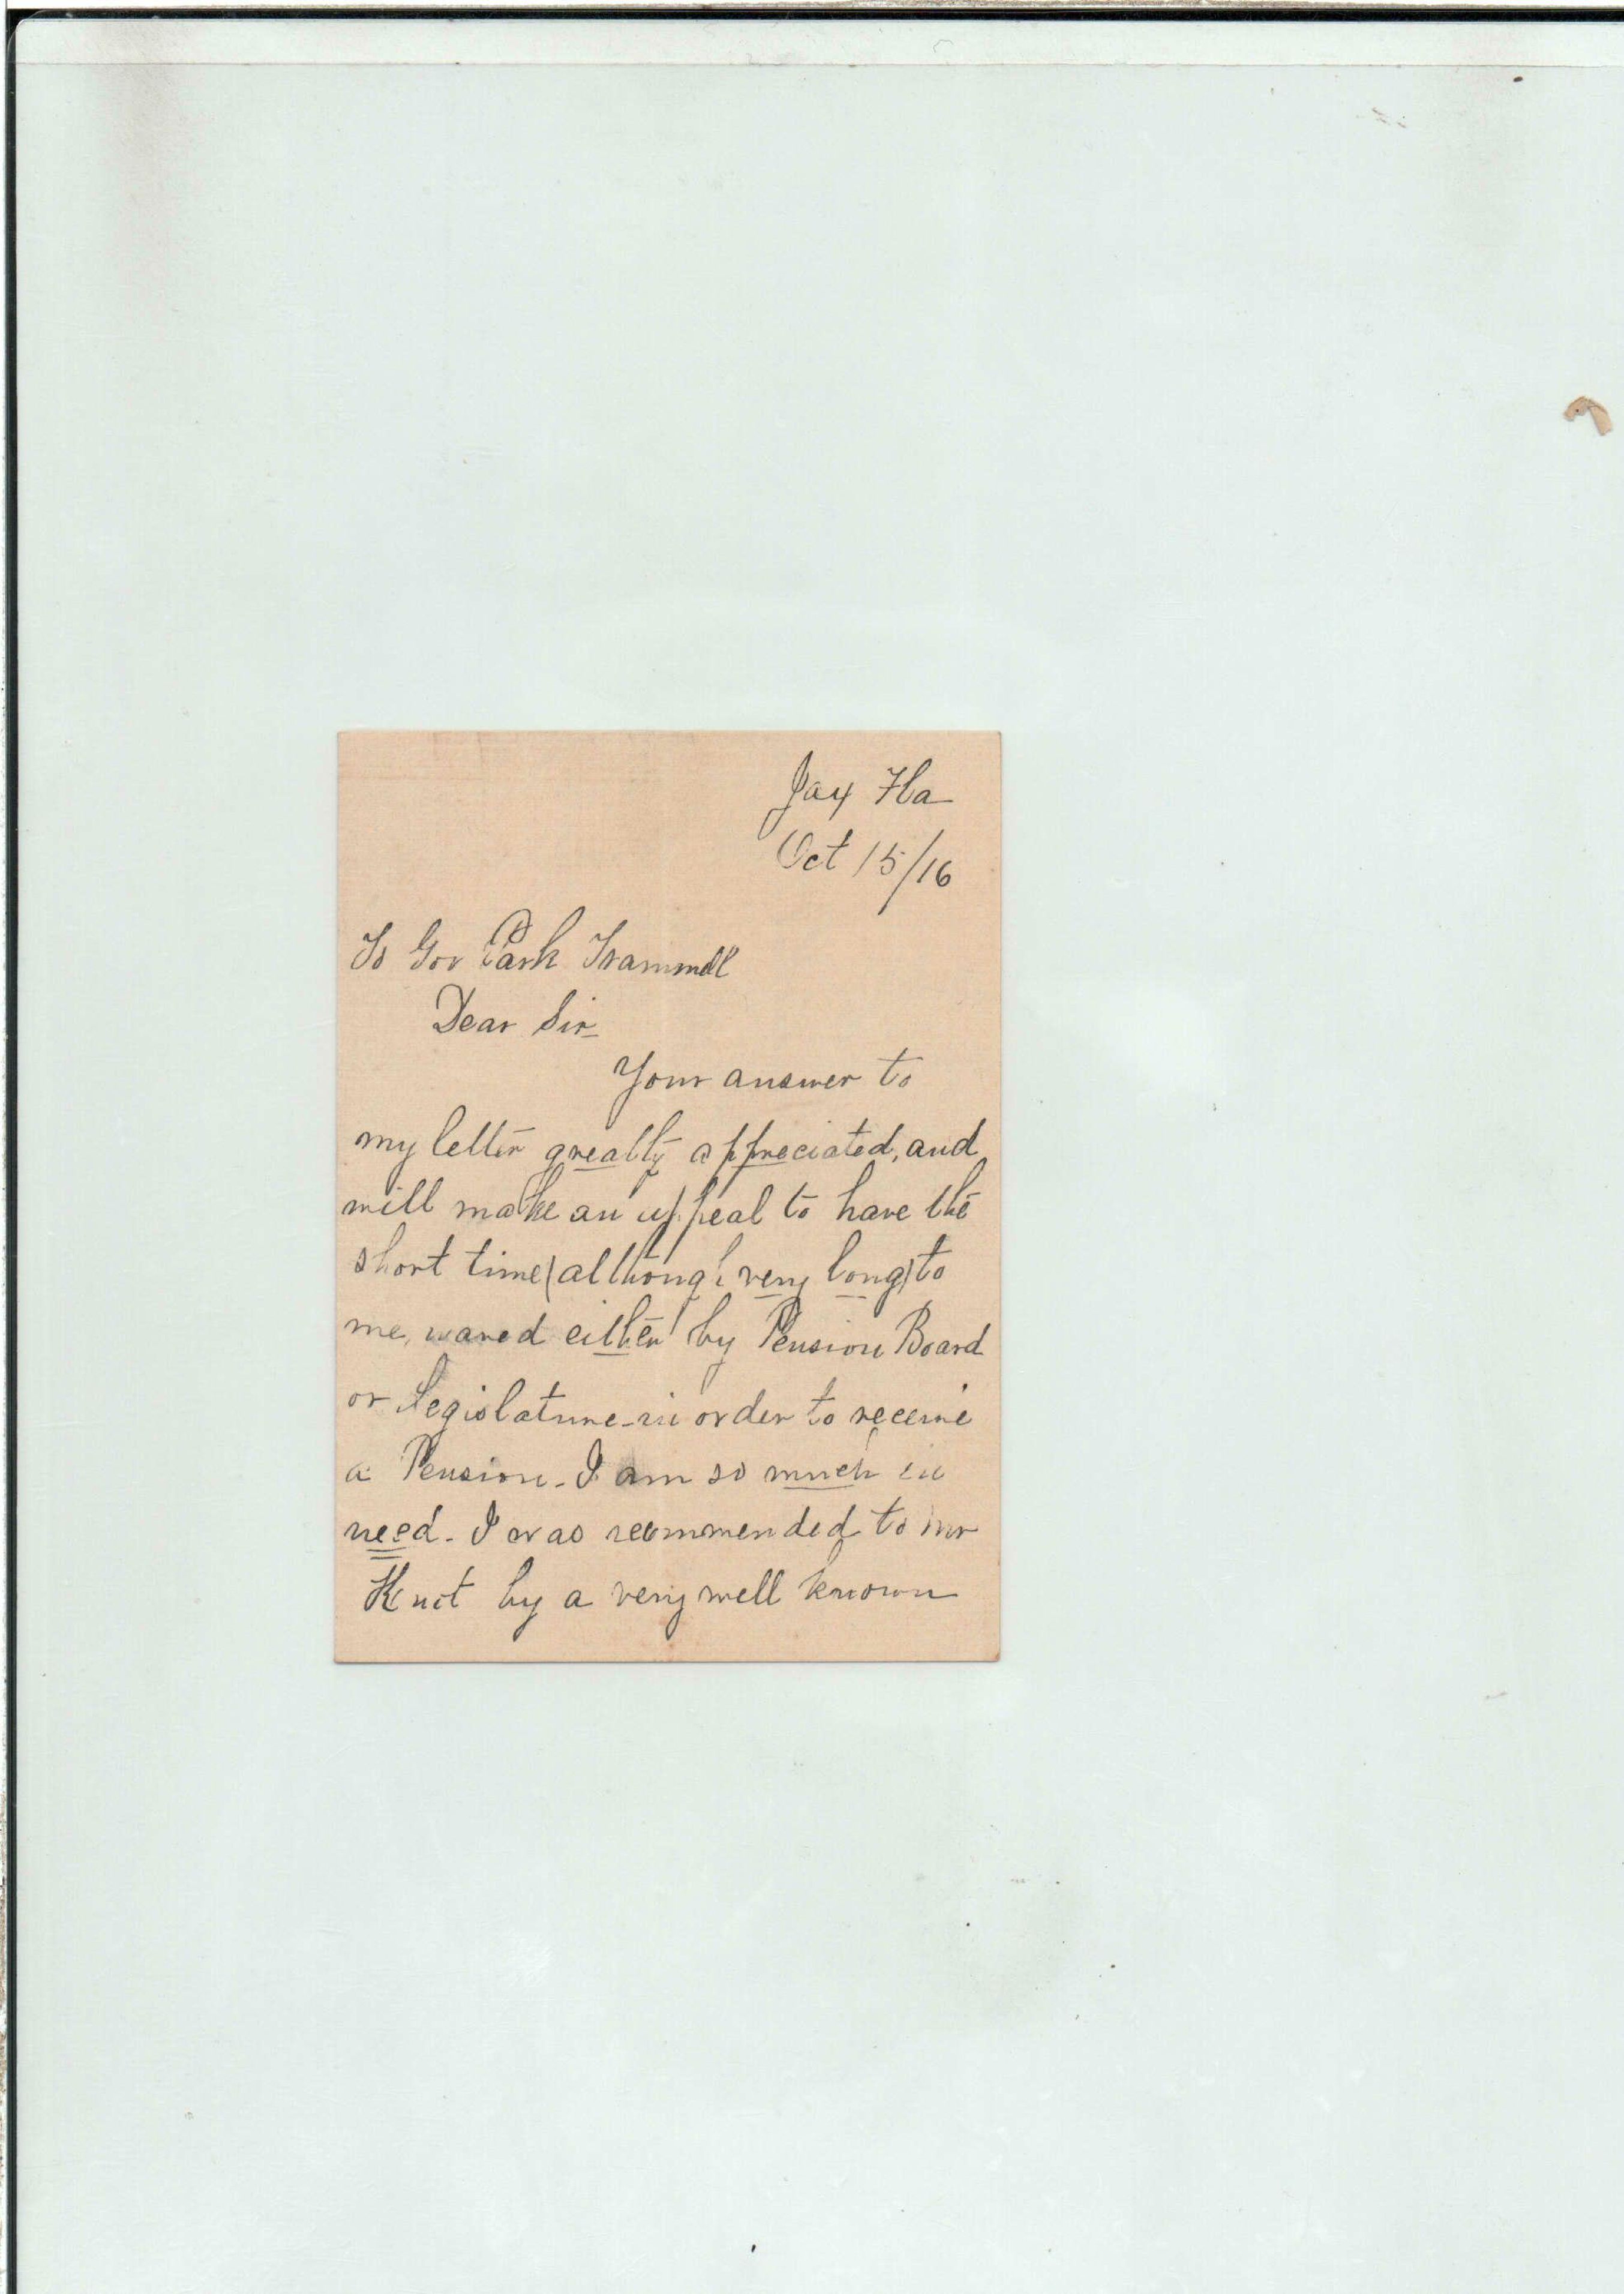 Jax Fla
Oct 15/16
To Gov Park Trammell
Dear Sir
Your answer to
my letter greatly appreciated, and
will make an appeal to have the
short time (although very long) to
me, waved either by Pension Board
or Legislature - in order to receive
a Pension - I am so much in
need - I was recommended to Mr
Knot by a very well known